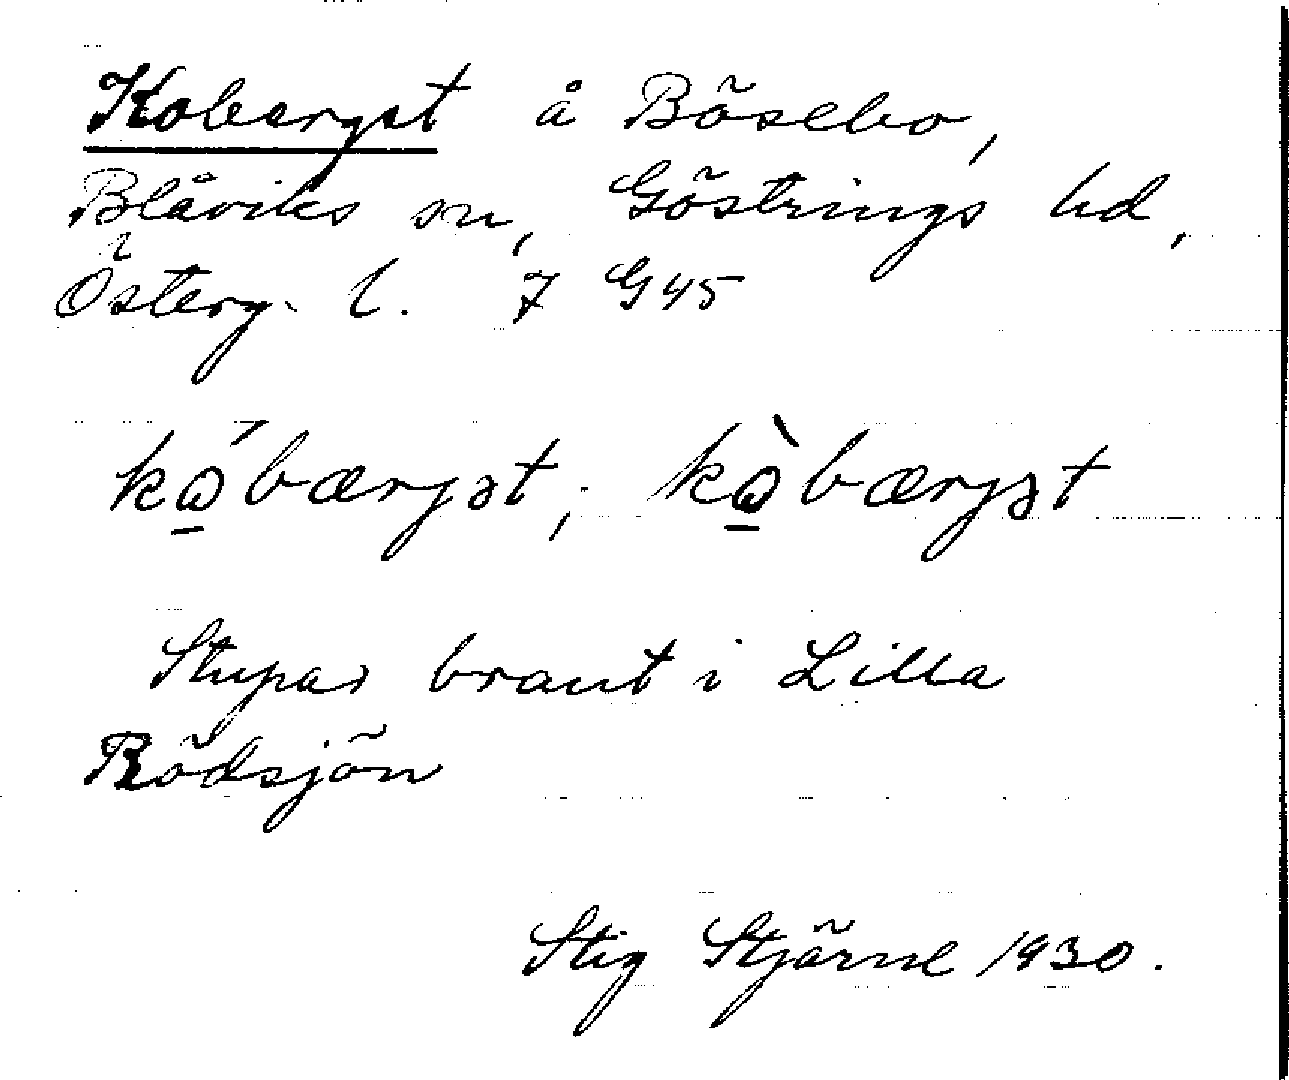 Koberget å Bösebo,
Blåviks sn, Göstrings hd,
Österg. l. 7 G45
kώ̲bærjət, kὼ̲bærjət
Stupar brant i Lilla
Rödsjön
Stig Stjärne 1930.